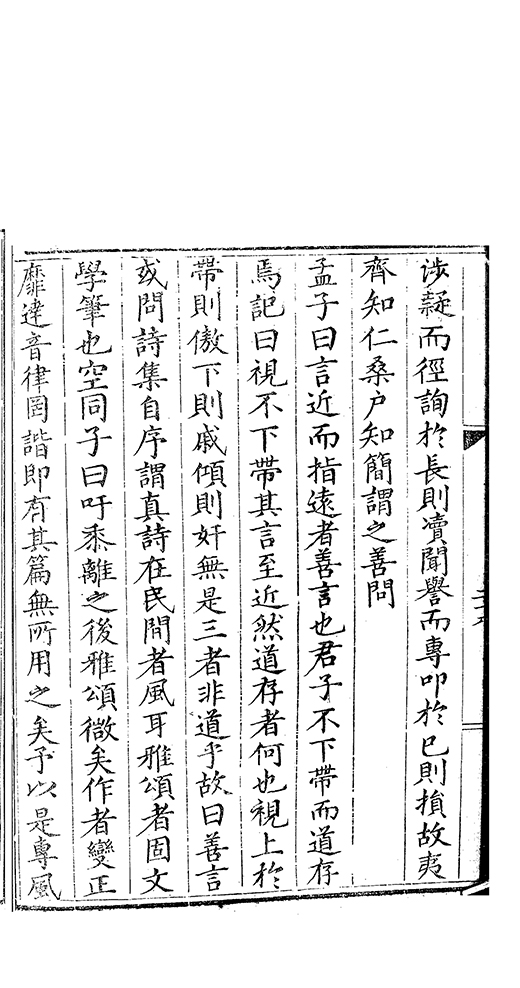 涉疑而徑詢於長則凟聞譽而專叩於已則損故夷
齊知仁桑户知簡謂之善問
孟子曰言近而指遠者善言也君子不下帶而道存
焉記曰視不下帶其言至近然道存者何也視上於
帶則傲下則戚傾則奸無是三者非道乎故曰善言
或問詩集自序謂真詩在民間者風耳雅頌者固文
學筆也空同子曰吁黍離之後雅頌微矣作者變正
靡達音律罔諧即有其篇無所用之矣予以是專風